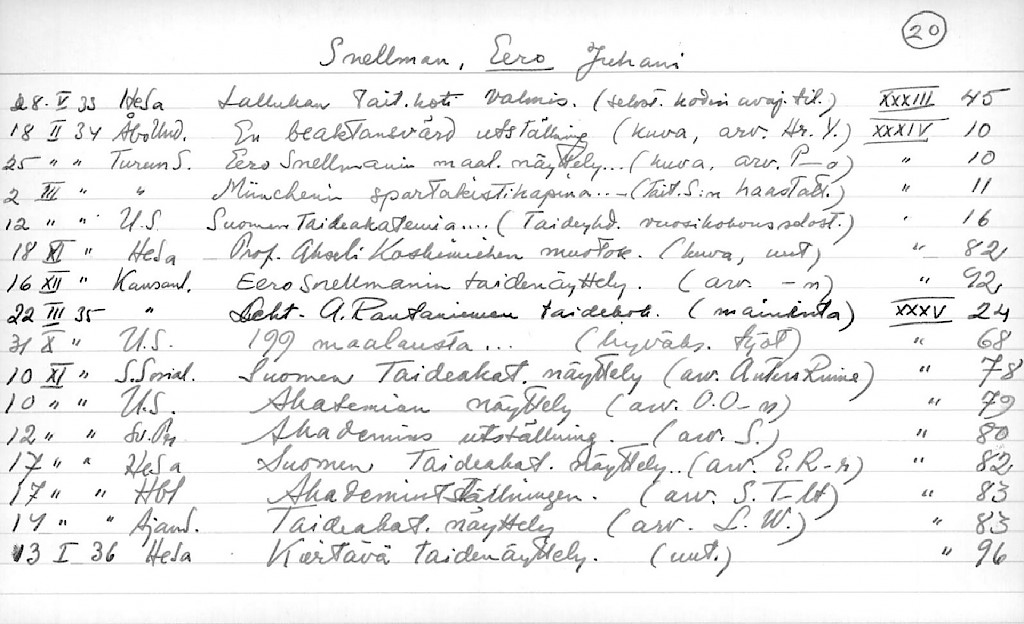 20
Snellman, Eero Juhani
28. V 33 HeSa Lallukan Tait. koti valmis. (selost. kodin avaj. til.) XXXIII 45
18 II 34 ÅboUnd. En beaktansvärd utställning (kuva, arv. Hr. Y.) XXXIV 10
25 " " TurunS. Eero Snellmanin maal. näyttely... (kuva, arv. P-o) " 10
2 III " " Münchenin spartakistikapina... (Tait. S:n haastatt.) " 11
12 " " U.S. Suomen Taideakatemia.... (Taideyhd. vuosikokousselost.) " 16
18 XI " HeSa Prof. Akseli Koskimiehen muotok. (kuva, uut) " 82
16 XII " Kansanl. Eero Snellmanin taidenäyttely. (arv. -n) " 92
22 III 35 " Leht. A. Rautaniemen taidekok. (maininta) XXXV 24
31 X " U.S. 199 maalausta... (hyväks. työt) " 68
10 XI " S.Sosial. Suomen Taideakat. näyttely (arv. Antero Rinne) " 78
10 " " U.S. Akatemian näyttely (arv. O.O-n) " 79
12 " " Sv.Pr Akademins utställning. (arv. S.) " 80
17 " " HeSa Suomen Taideakat. näyttely.. (arv. E. R-r) " 82
17 " " Hbl Akademiutställningen. (arv. S. T-lt) " 83
17 " " Ajans. Taideakat. näyttely (arv. L. W.) " 83
13 I 36 HeSa Kiertävä taidenäyttely. (uut.) " 96